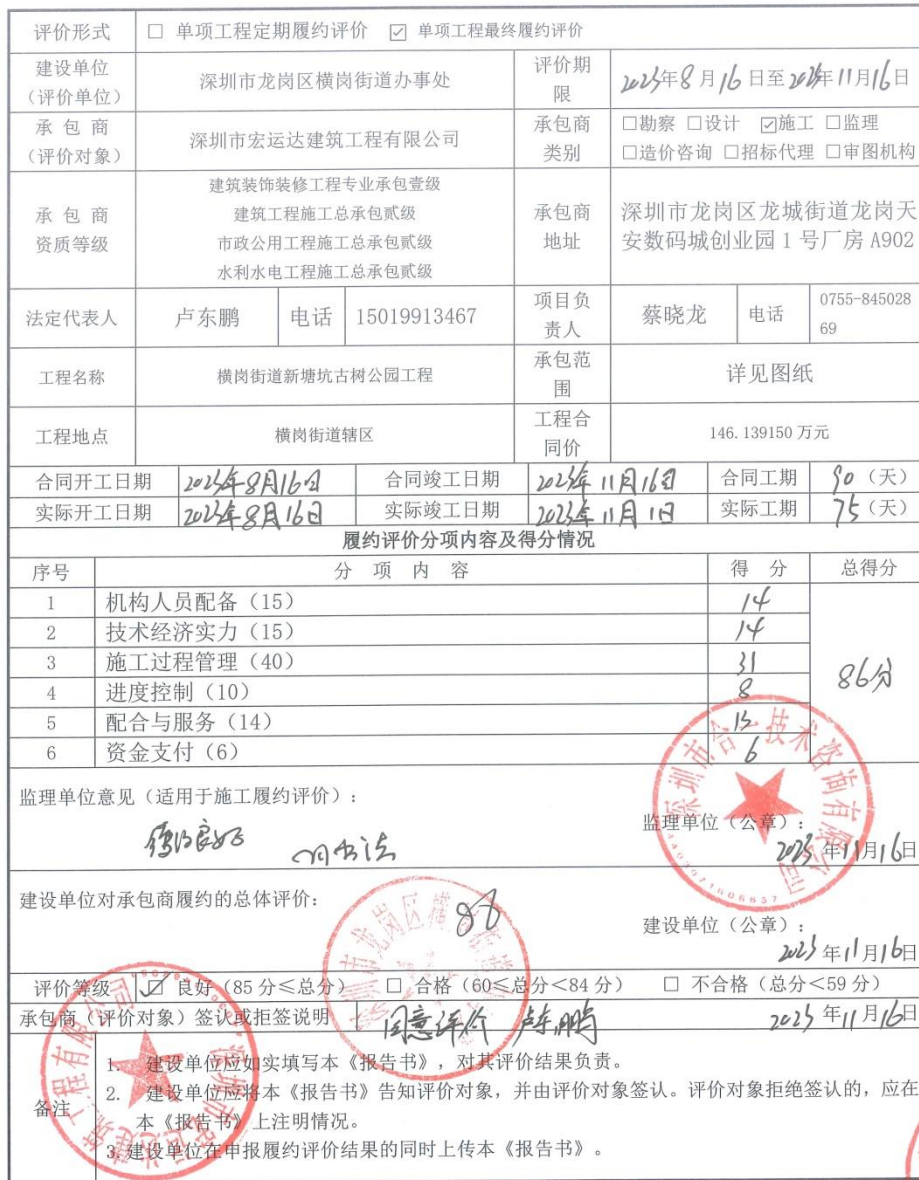 评价形式 □ 单项工程定期履约评价 ☑ 单项工程最终履约评价
建设单位（评价单位） 深圳市龙岗区横岗街道办事处 评价期限 2023年8月16日至2023年11月16日
承包商（评价对象） 深圳市宏运达建筑工程有限公司 承包商类别 □勘察 □设计 ☑施工 □监理
□造价咨询 □招标代理 □审图机构
承包商资质等级 建筑装饰装修工程专业承包壹级
建筑工程施工总承包贰级
市政公用工程施工总承包贰级
水利水电工程施工总承包贰级
承包商地址 深圳市龙岗区龙城街道龙岗天
安数码城创业园1号厂房A902
法定代表人 卢东鹏 电话 15019913467 项目负责人 蔡晓龙 电话 0755-84502869
工程名称 横岗街道新塘坑古树公园工程 承包范围 详见图纸
工程地点 横岗街道辖区 工程合同价 146.139150万元
合同开工日期 2023年8月16日 合同竣工日期 2023年11月16日 合同工期 90（天）
实际开工日期 2023年8月16日 实际竣工日期 2023年11月1日 实际工期 75（天）
履约评价分项内容及得分情况
序号 分项内容 得分 总得分
1 机构人员配备（15） 14
2 技术经济实力（15） 14
3 施工过程管理（40） 31
4 进度控制（10） 8
5 配合与服务（14） 13
6 资金支付（6） 6
86分
监理单位意见（适用于施工履约评价）：
监理单位（公章）：
2023年11月16日
建设单位对承包商履约的总体评价：
建设单位（公章）：
2023年11月16日
评价等级 ☑ 良好（85分≤总分） □ 合格（60≤总分<84分） □ 不合格（总分<59分）
承包商（评价对象）签认或拒签说明 同意评价 卢东鹏 2023年11月16日
备注
1. 建设单位应如实填写本《报告书》，对其评价结果负责。
2. 建设单位应将本《报告书》告知评价对象，并由评价对象签认。评价对象拒绝签认的，应在
本《报告书》上注明情况。
3.建设单位在申报履约评价结果的同时上传本《报告书》。